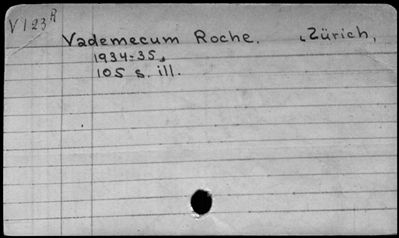 V123R
Vademecum Roche. Zürich,
1934-35.
105 s. ill.